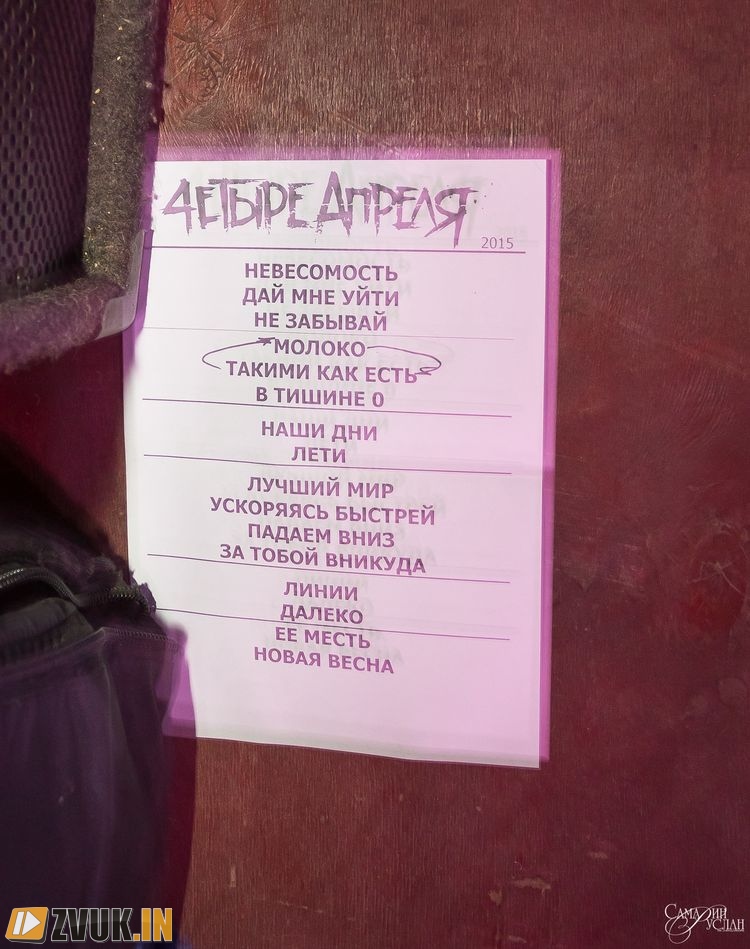 4ЕТЫРЕ АПРЕЛЯ
2015
НЕВЕСОМОСТЬ
ДАЙ МНЕ УЙТИ
НЕ ЗАБЫВАЙ
МОЛОКО
ТАКИМИ КАК ЕСТЬ
В ТИШИНЕ 0
НАШИ ДНИ
ЛЕТИ
ЛУЧШИЙ МИР
УСКОРЯЯСЬ БЫСТРЕЙ
ПАДАЕМ ВНИЗ
ЗА ТОБОЙ ВНИКУДА
ЛИНИИ
ДАЛЕКО
ЕЕ МЕСТЬ
НОВАЯ ВЕСНА
ZVUK.IN
САМАРИН
РУСЛАН